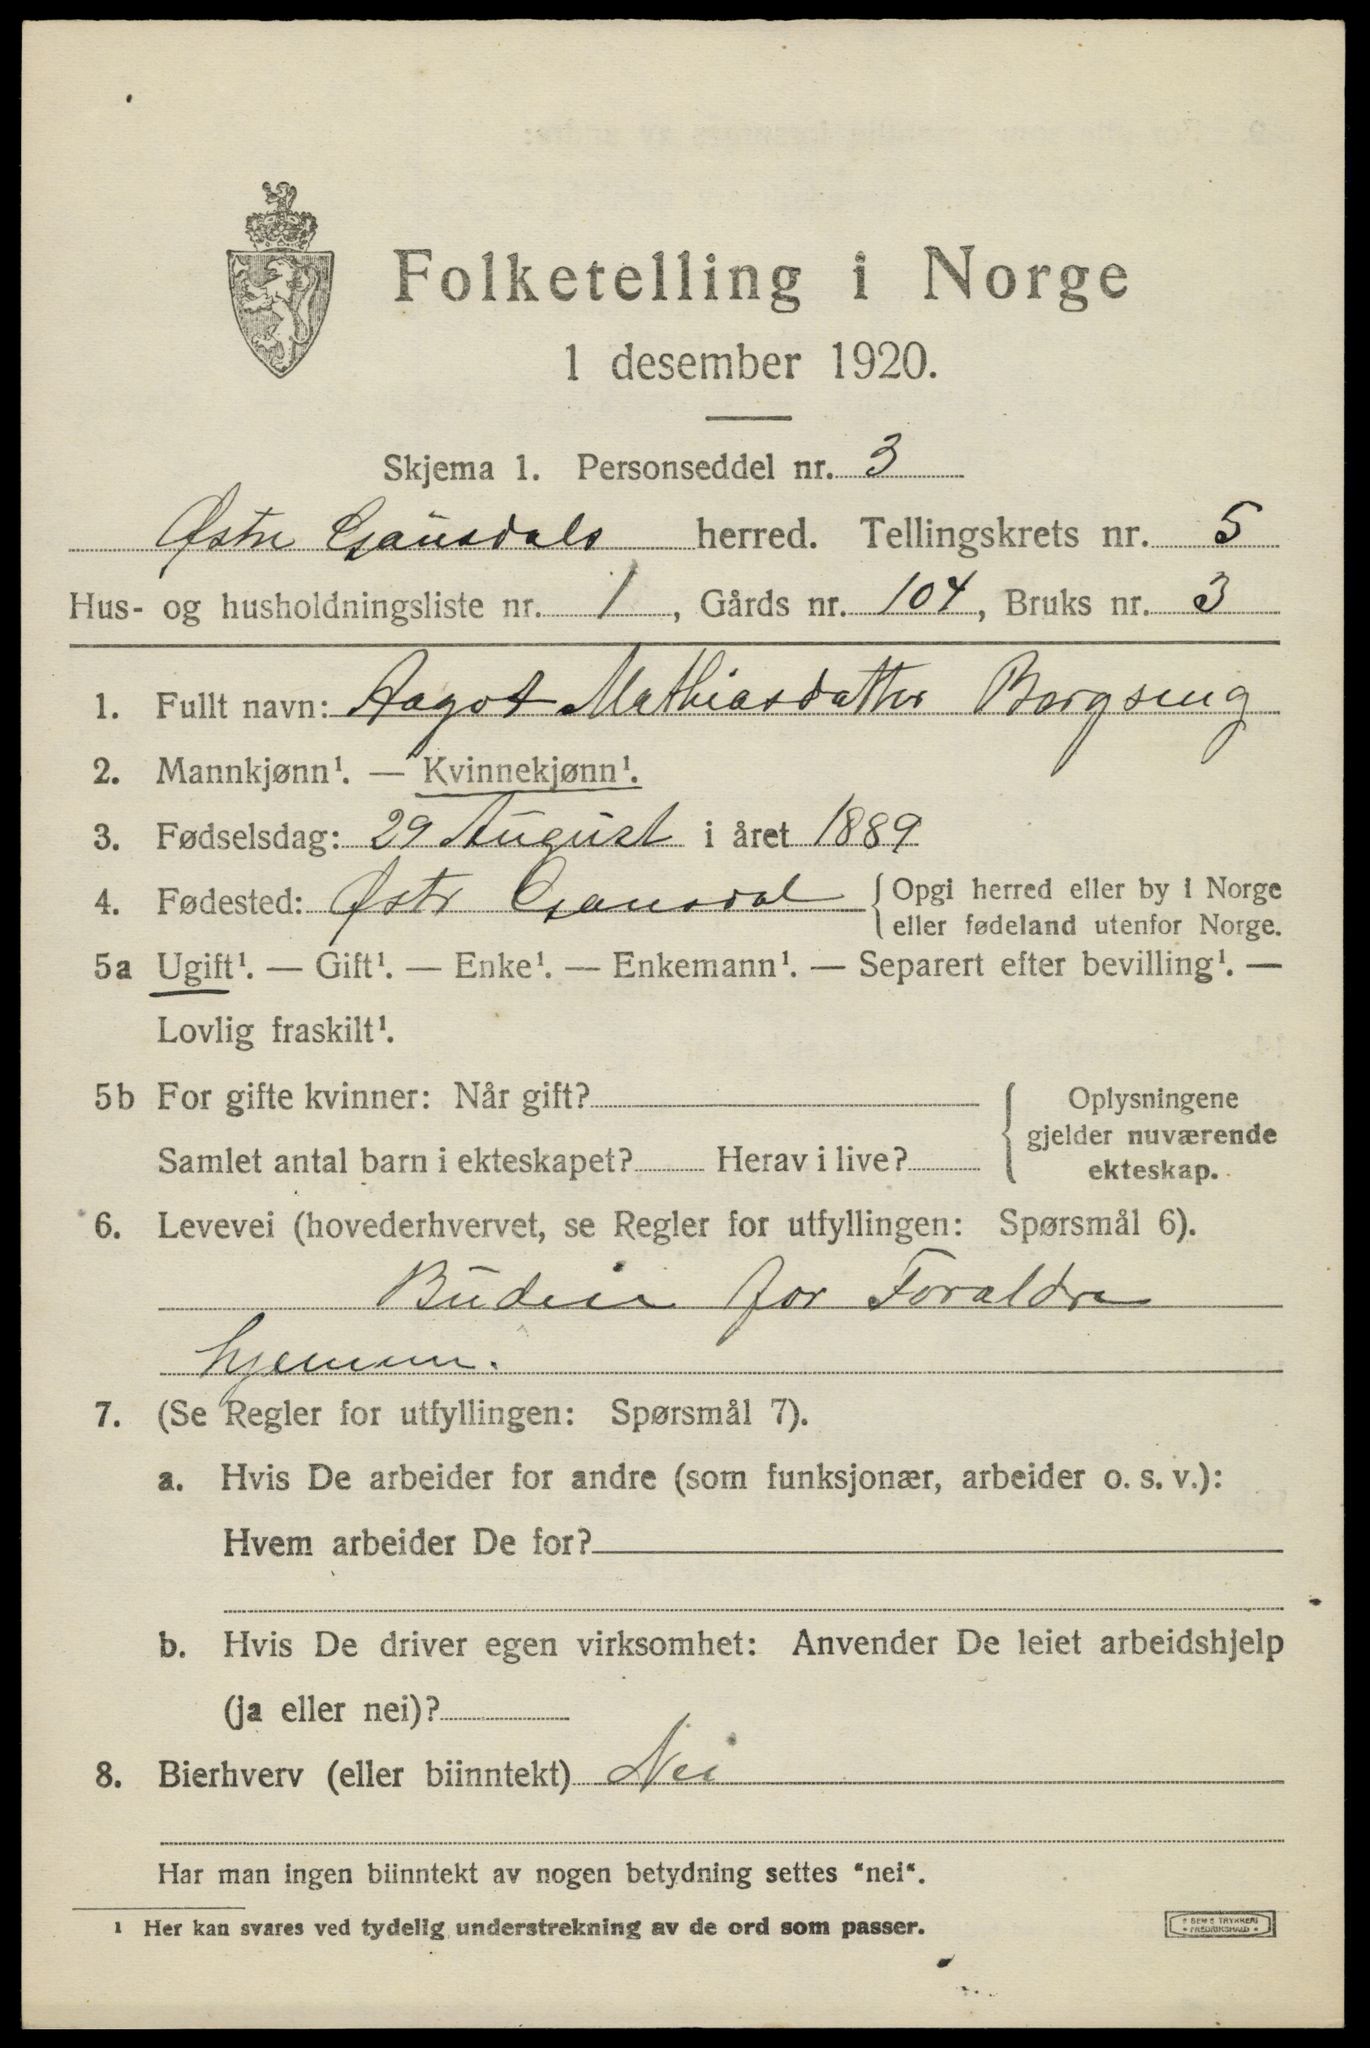 Folketelling i Norge
1 desember 1920.
Skjema 1. Personseddel nr. 3
Østre Gausdals herred. Tellingskrets nr. 5
Hus- og husholdningsliste nr. 1, Gårds nr. 104, Bruks nr. 3
1. Fullt navn: Aagot Mathiasdatter Bergseng
2. Mannkjønn¹. — Kvinnekjønn¹.
3. Fødselsdag: 29 August i året 1889
4. Fødested: Østr Gausdal {Opgi herred eller by i Norge
eller fødeland utenfor Norge.
5a Ugift¹. — Gift¹. — Enke¹. — Enkemann¹. — Separert efter bevilling¹. —
Lovlig fraskilt¹.
5b For gifte kvinner: Når gift?
Samlet antal barn i ekteskapet? Herav i live?
Oplysningene
gjelder nuværende
ekteskap.
6. Levevei (hovederhvervet, se Regler for utfyllingen: Spørsmål 6).
Budeie for Foraldre
hjemmen.
7. (Se Regler for utfyllingen: Spørsmål 7).
a. Hvis De arbeider for andre (som funksjonær, arbeider o. s. v.):
Hvem arbeider De for?
b. Hvis De driver egen virksomhet: Anvender De leiet arbeidshjelp
(ja eller nei)?
8. Bierhverv (eller biinntekt) Nei
Har man ingen biinntekt av nogen betydning settes "nei".
¹ Her kan svares ved tydelig understrekning av de ord som passer.
TRYKKERI
FREDRIKSHALD